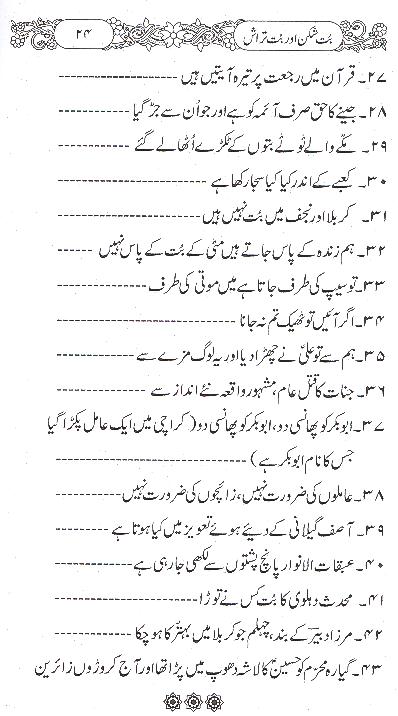 بُت شکن اور بُت تراش
۲۴
۲۷۔ قرآن میں رجعت پر تیرہ آیتیں ہیں --------------------
۲۸۔ جینے کا حق صرف آئمہ کو ہے اور جو اُن سے جڑ گیا --------------
۲۹۔ مکّے والے ٹوٹے بتوں کے ٹکڑے اُٹھا لے گئے --------------
۳۰۔ کعبے کے اندر کیا کیا سجا رکھا ہے --------------------
۳۱۔ کربلا اور نجف میں بُت نہیں ہیں --------------------
۳۲۔ ہم زندہ کے پاس جاتے ہیں مٹی کے بُت کے پاس نہیں ------
۳۳۔ تو سیپ کی طرف جاتا ہے میں موتی کی طرف --------------
۳۴۔ اگر آئیں تو ٹھیک تم نہ جانا --------------------
۳۵۔ ہم سے تو علیؑ نے چھڑا دیا اور یہ لوگ مزے سے --------------
۳۶۔ جنات کا قتل عام، مشہور واقعہ نئے انداز سے --------------
۳۷۔ ابوبکر کو پھانسی دو، ابوبکر کو پھانسی دو (کراچی میں ایک عامل پکڑا گیا
جس کا نام ابوبکر ہے) --------------------
۳۸۔ عاملوں کی ضرورت نہیں، زائچوں کی ضرورت نہیں ------------
۳۹۔ آصف گیلانی کے دیئے ہوئے تعویز میں کیا ہوتا ہے ------------
۴۰۔ عبقات الانوار پانچ پشتوں سے لکھی جا رہی ہے ------------
۴۱۔ محدث دہلوی کا بُت کس نے توڑا --------------------
۴۲۔ مرزا دبیرؔ کے بند، چہلم جو کربلا میں بہترؑ کا ہو چکا ------------
۴۳۔ گیارہ محرّم کو حسینؑ کا لاشہ دھوپ میں پڑا تھا اور آج کروڑوں زائرین